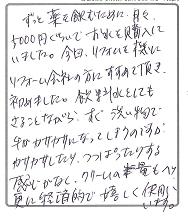 ずっと薬を飲むために、月々
5000円ぐらいでお水を購入して
いました。今回、リフォームを機に
リフォーム会社の方にすすめて頂き
初めました。飲料水としても
さることながら、すぐ洗い物で
手がカサカサになってしまうのですが
カサカサしたり、つっぱったりする
感じがなく、クリームの量もへり
更に経済的で嬉しく使用
います。